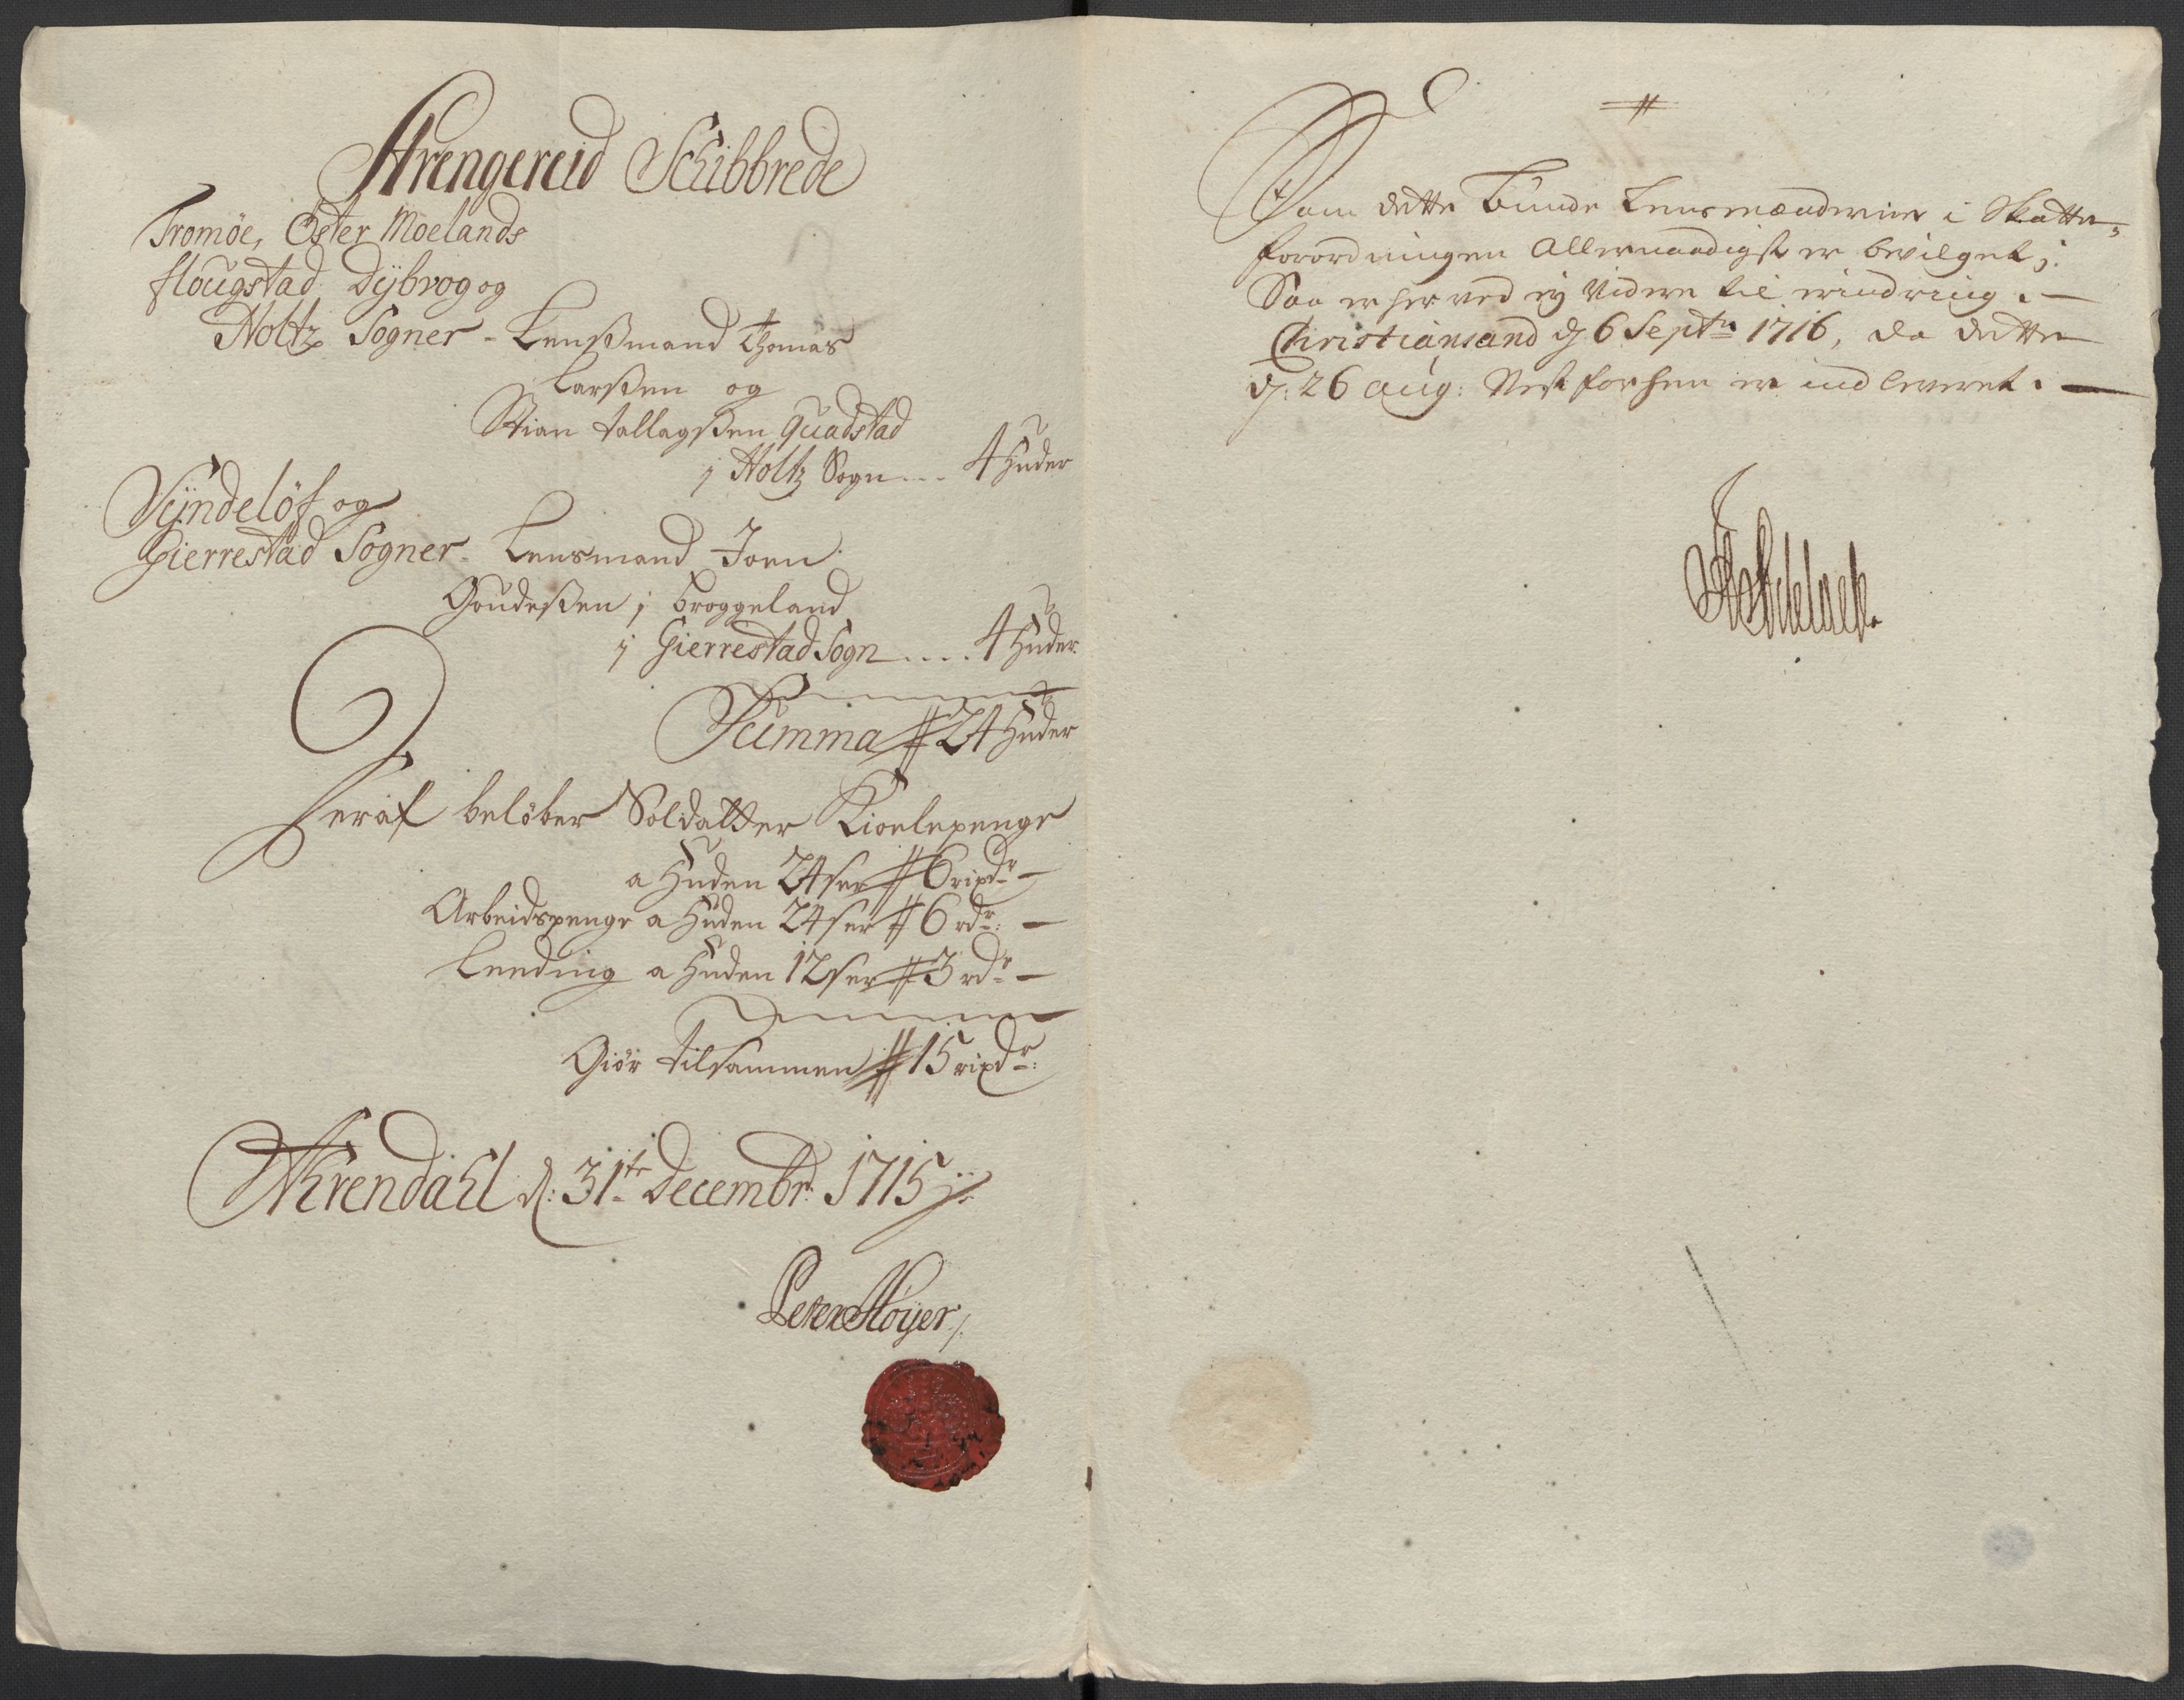 Strengereid Schibbrede
Tromöe, Öster Moelands
flougstad Dÿbvog og
Holtz Sogner - Lensßmand Thomas
Larßen og
Stian tallagßen Quadstad
j Holtz Sogn ... 4 huder
Sÿndelöf og
Gierrestad Sogner - Lensmand Joen
Goudeßen j Broggeland
j Gierrestad Sogn .... 4 huder
Summa # 24 huder
Heraf beløber Soldatter Kiolepenge
a huden 24 ser # 6 rixdr —
Arbeidspenge a huden 24 ser # 6 rdr: —
Leeding a huden 12 ser # 3 rdr —
Giör tilsammen # 15 rixdr:
Ahrendahl d: 31te Decembr: 1715
Peter Höyer
Som dette bunde Lensmænderne i Skatte-
forordningen Allernaadigst er bevilget;
Saa er her ved ej videre til erindring. —
Christiansand d 6 Septr 1716, da dette
d: 26 aug: Nest forhen er indleveret. —